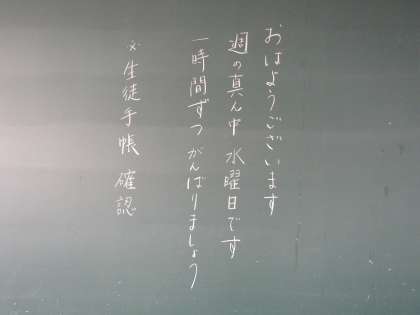 おはようございます
週の真ん中 水曜日です
一時間ずつ がんばりましょう
※生徒手帳 確認